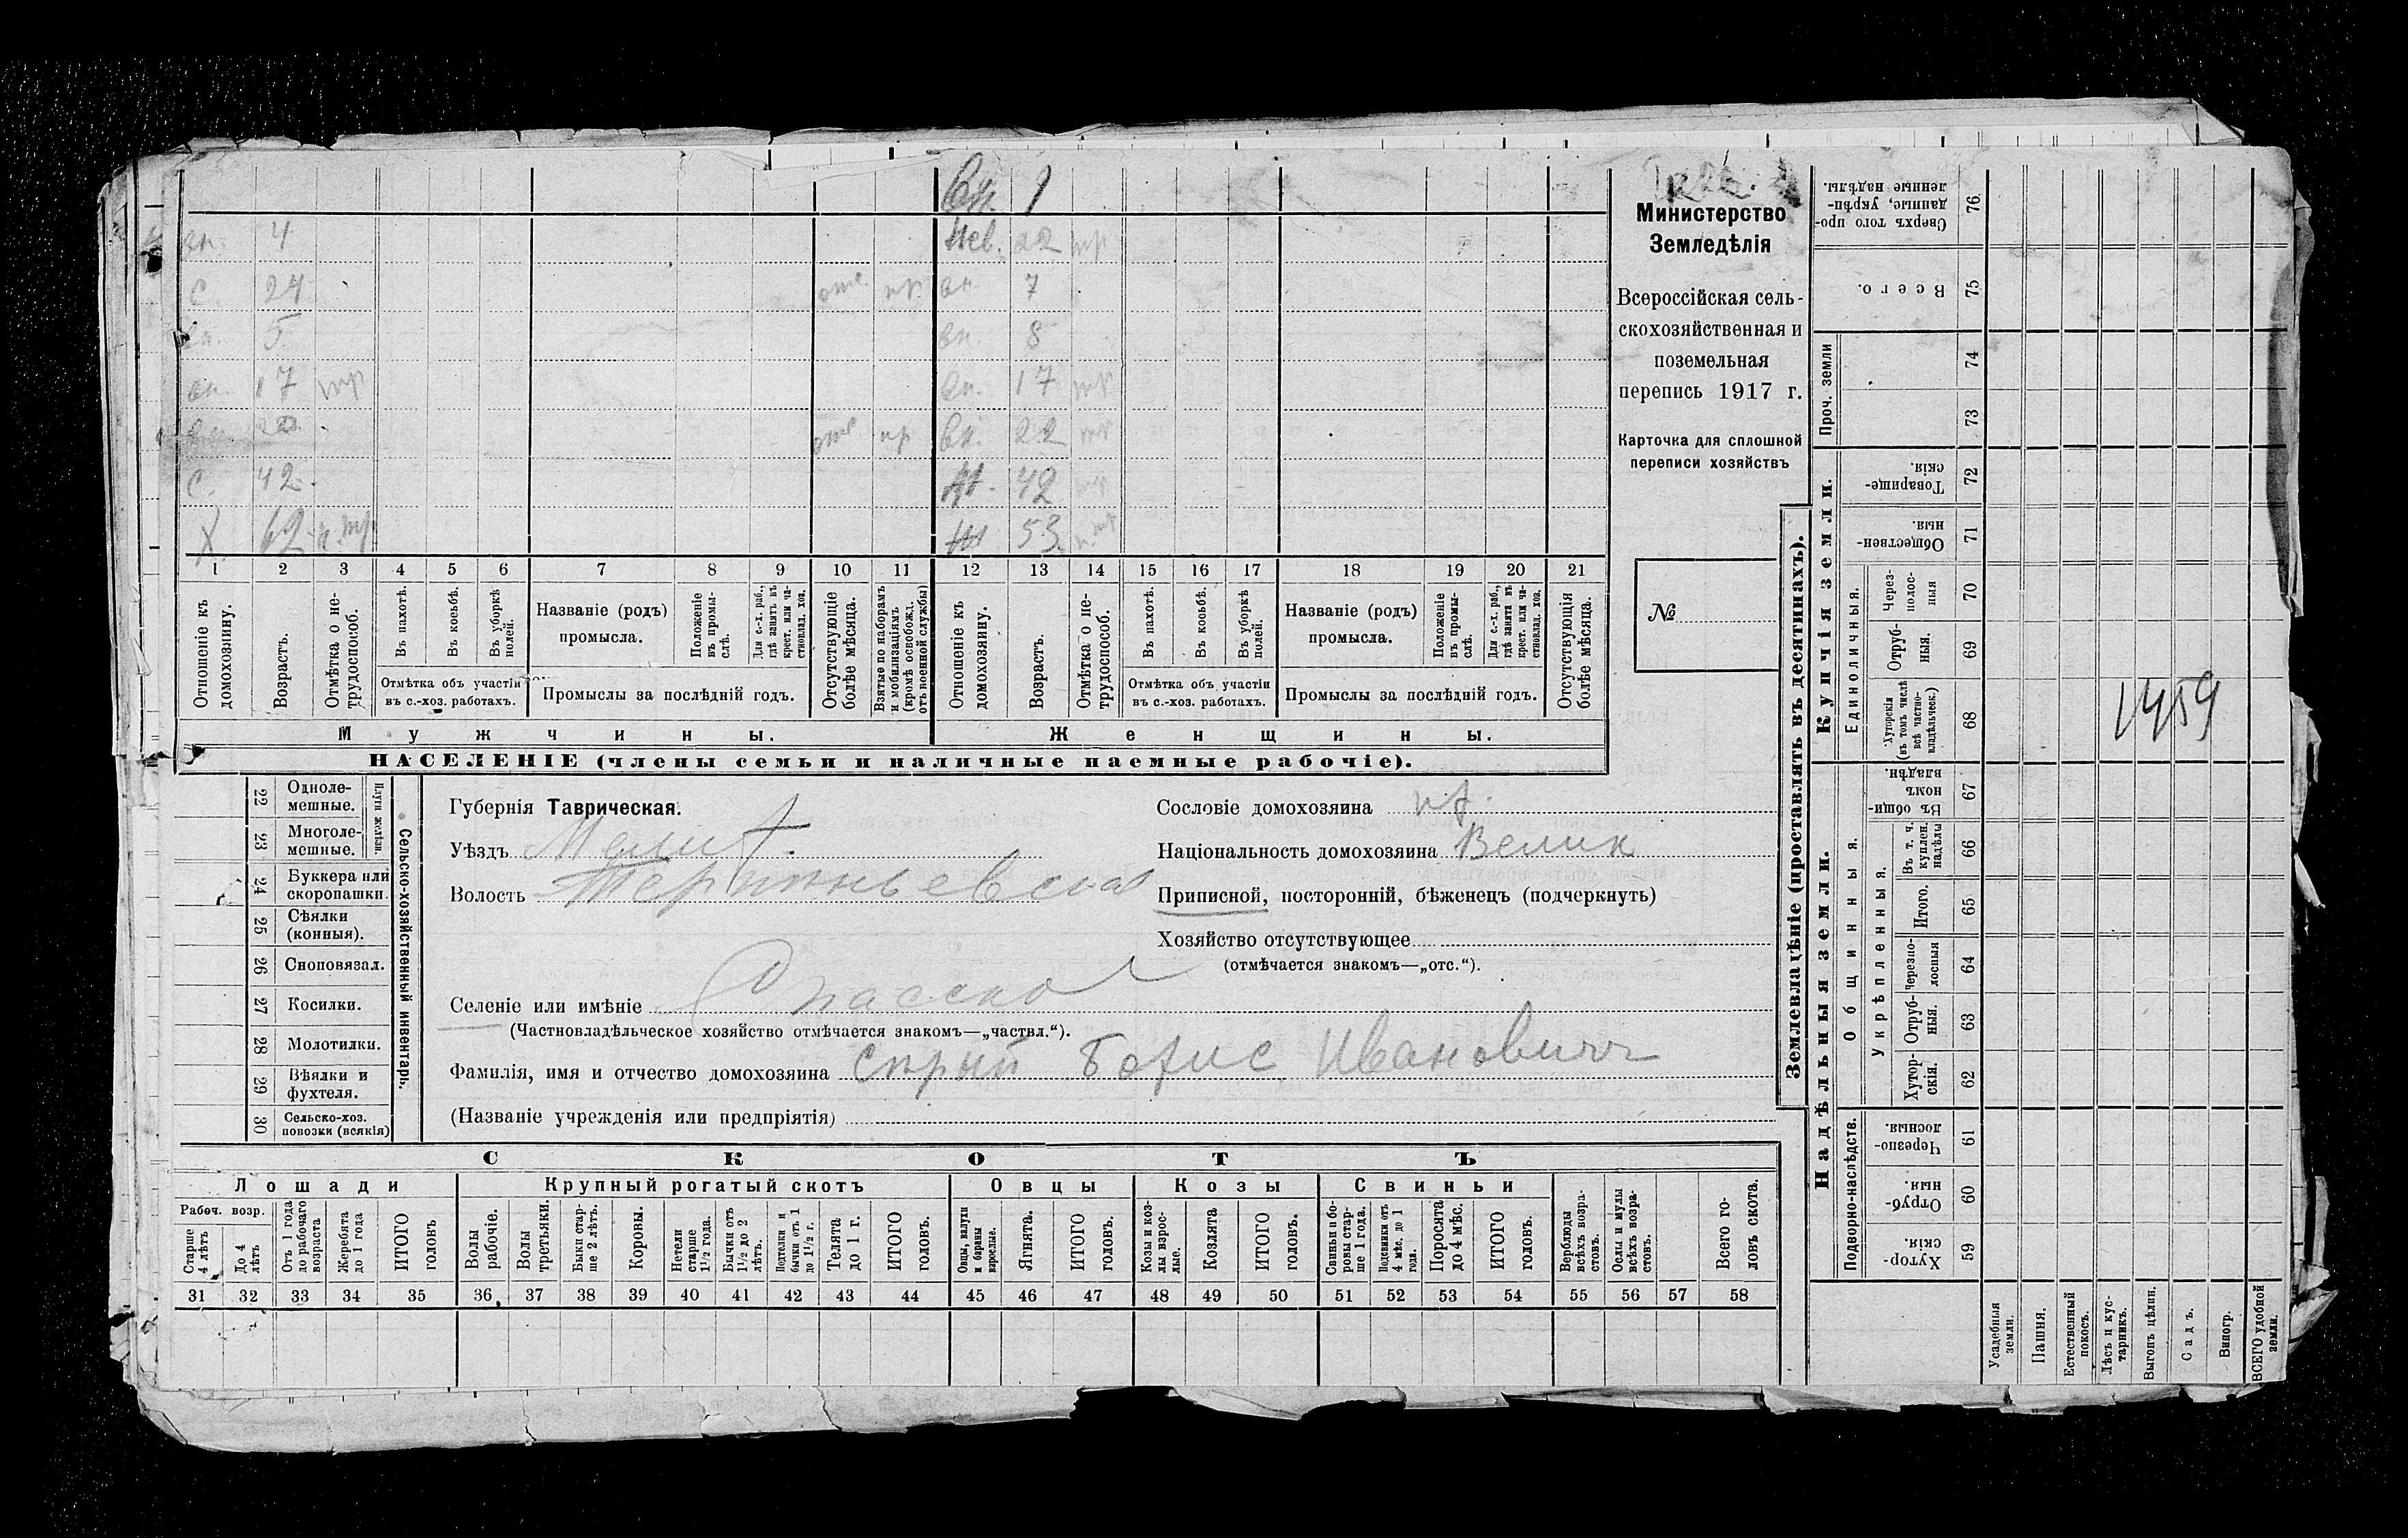 Вн. 1
вн. 4 Нев. 22 тр
с. 24 отс. пр. вн. 7
вн. 5 вн. 8
вн. 17 нтр вн. 17 тр
вн. 20 отс пр вн. 22
с. 42 Н. 42
Х 62 п. тр 53
1 2 3 4 5 6 7 8 9 10 11 12 13 14 15 16 17 18 19 20 21
Отношеніе къ домохозяину.
Возрастъ.
Отмѣтка о не-
трудоспособ.
Въ пахотѣ.
Въ косьбѣ.
Въ уборкѣ
полей.
Отмѣтка объ участіи
въ с.-хоз. работахъ.
Названіе (родъ)
промысла.
Положеніе
въ промы-
слѣ.
Для с.-х. раб.,
гдѣ занятъ въ
крест. или ча-
стновлад. хоз.
Промыслы за послѣдній годъ.
Отсутствующіе
болѣе мѣсяца.
Взятые по наборамъ
и мобилизаціямъ
(кромѣ освобожд.
отъ военной службы)
Отношеніе къ
домохозяину.
Возрастъ.
Отмѣтка о не-
трудоспособ.
Въ пахотѣ.
Въ косьбѣ.
Въ уборкѣ
полей.
Отмѣтка объ участіи
въ с.-хоз. работахъ.
Названіе (родъ)
промысла.
Положеніе
въ промы-
слѣ.
Для с.-х. раб.,
гдѣ занята въ
крест. или ча-
стновлад. хоз.
Промыслы за послѣдній годъ.
Отсутствующія
болѣе мѣсяца.
Мужчины. Женщины.
НАСЕЛЕНІЕ (члены семьи и наличные наемные рабочіе).
Министерство
Земледѣлія
Всероссійская сель-
скохозяйственная и
поземельная
перепись 1917 г.
Карточка для сплошной
переписи хозяйствъ
№
22 Одноле-
мешные.
23 Многоле-
мешные.
Плуги желѣзн.
24 Буккера или
скоропашки.
25 Сѣялки
(конныя).
26 Сноповязал.
27 Косилки.
28 Молотилки.
29 Вѣялки и
фухтеля.
30 Сельско-хоз.
повозки (всякія)
Сельско-хозяйственный инвентарь.
Губернія Таврическая.
Уѣздъ Мелит.
Волость Терпиньевская
Селеніе или имѣніе Спасско
(Частновладѣльческое хозяйство отмѣчается знакомъ—„частвл.“).
Фамилія, имя и отчество домохозяина Сѣрый Борис Иванович
(Названіе учрежденія или предпріятія)
Сословіе домохозяина кр.
Національность домохозяина Велик
Приписной, посторонній, бѣженецъ (подчеркнуть)
Хозяйство отсутствующее
(отмѣчается знакомъ—„отс.“).
СКОТЪ
Лошади Крупный рогатый скотъ Овцы Козы Свиньи
Рабоч. возр.
Старше
4 лѣтъ
До 4
лѣтъ
Отъ 1 года
до рабочаго
возраста
Жеребята
до 1 года
ИТОГО
головъ
Волы
рабочіе.
Волы
третьяки.
Быки стар-
ше 2 лѣтъ.
Коровы.
Нетели
старше
1½ года.
Бычки отъ
1½ до 2
лѣтъ.
Подтелки и
бычки отъ 1
до 1½ г.
Телята
до 1 г.
ИТОГО
головъ.
Овцы, валухи
и бараны
взрослые.
Ягнята.
ИТОГО
головъ.
Козы и коз-
лы взрос-
лые.
Козлята
ИТОГО
головъ.
Свиньи и бо-
ровы стар-
ше 1 года.
Подсвинки отъ
4 мѣс. до 1
года.
Поросята
до 4 мѣс.
ИТОГО
головъ.
Верблюды
всѣхъ возра-
стовъ.
Ослы и мулы
всѣхъ возра-
стовъ.
Всего го-
ловъ скота.
31 32 33 34 35 36 37 38 39 40 41 42 43 44 45 46 47 48 49 50 51 52 53 54 55 56 57 58
Землевладѣніе (проставлять въ десятинахъ).
Надѣльныя земли. Купчія земли.
Подворно-наслѣдств.
Общинныя.
Укрѣпленныя.
Единоличныя.
Проч. земли
Сверхъ того про-
данные, укрѣп-
ленные надѣлы. 76
Всего. 75
74
73
Товарище-
скія. 72
Обществен-
ныя. 71
Через-
полос-
ныя 70
Отруб-
ныя. 69
Хуторскія
(въ томъ числѣ
всѣ частно-
владѣльческ.) 68
Въ общи-
номъ
владѣн. 67
Въ т. ч.
куплен.
надѣлы 66
Итого. 65
Черезпо-
лосныя 64
Отруб-
ныя. 63
Хутор-
скія. 62
Черезпо-
лосныя. 61
Отруб-
ныя. 60
Хутор-
скія. 59
Усадебныя
земли.
Пашня.
Естественный
покосъ.
Лѣсъ и кус-
тарникъ.
Выгонъ цѣлин.
Садъ.
Виногр.
ВСЕГО удобной
земли.
1459